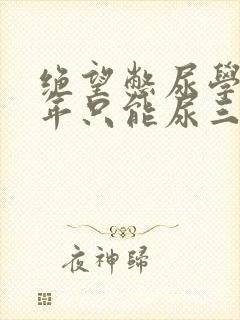 绝望憋尿學
年只能尿三
夜神歸